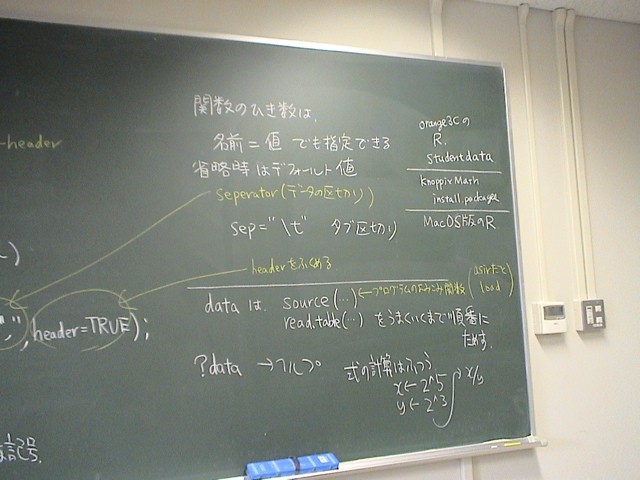 -header
)
",", header=TRUE);
関数のひき数は、
名前 = 値 でも指定できる
省略時はデフォールト値
seperator(データの区切り)
sep="\t" タブ区切り
headerをふくめる
data は source(…) ← プログラムのよみこみ関数 (asirだと load)
read.table(…) をうまくいくまで順番に
ためす.
?data → ヘルプ
式の計算はふつう
x ← 2^5
y ← 2^3
→ x/y
orange3Cの
R.
studentdata
knoppix Math
install.packages
MacOS版のR